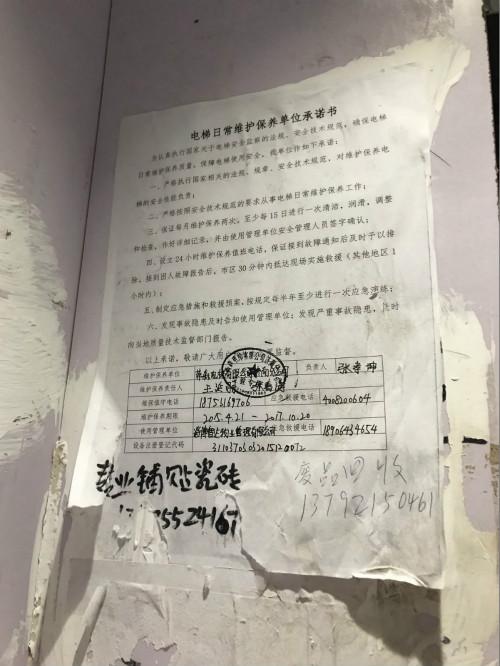 电梯日常维护保养单位承诺书
为认真执行国家关于电梯安全监察的法规、安全技术规范,确保电梯
日常维护保养质量,保障电梯使用安全,我单位作如下承诺:
一、严格执行国家相关的法规、规章、安全技术规范,对维护保养电
梯的安全性能负责;
二、严格按照安全技术规范的要求从事电梯日常维护保养工作;
三、保证每月维护保养两次,至少每15日进行一次清洁,润滑,调整
和检查,作好详细记录,并由使用管理单位安全管理人员签字确认;
四、设立24小时维护保养值班电话,保证接到故障通知后及时予以排
除,接到困人故障报告后,市区30分钟内抵达现场实施救援(其他地区1
小时内);
五、制定应急措施和救援预案,按规定每半年至少进行一次应急演练;
六、发现事故隐患及时告知使用管理单位;发现严重事故隐患,及时
向当地质量技术监督部门报告。
以上承诺,敬请广大用 监督。
维护保养单位 负责人 张幸坤
维护保养责任人
维保值守电话 18753169706 应急救援电话 4008200604
维护保养期限 2015.4.21 - 2017.10.20
使用管理单位 应急救援电话 18906434654
设备注册登记代码 31103705032015120072
专业铺贴瓷砖
5524167
废品回收
13792150461